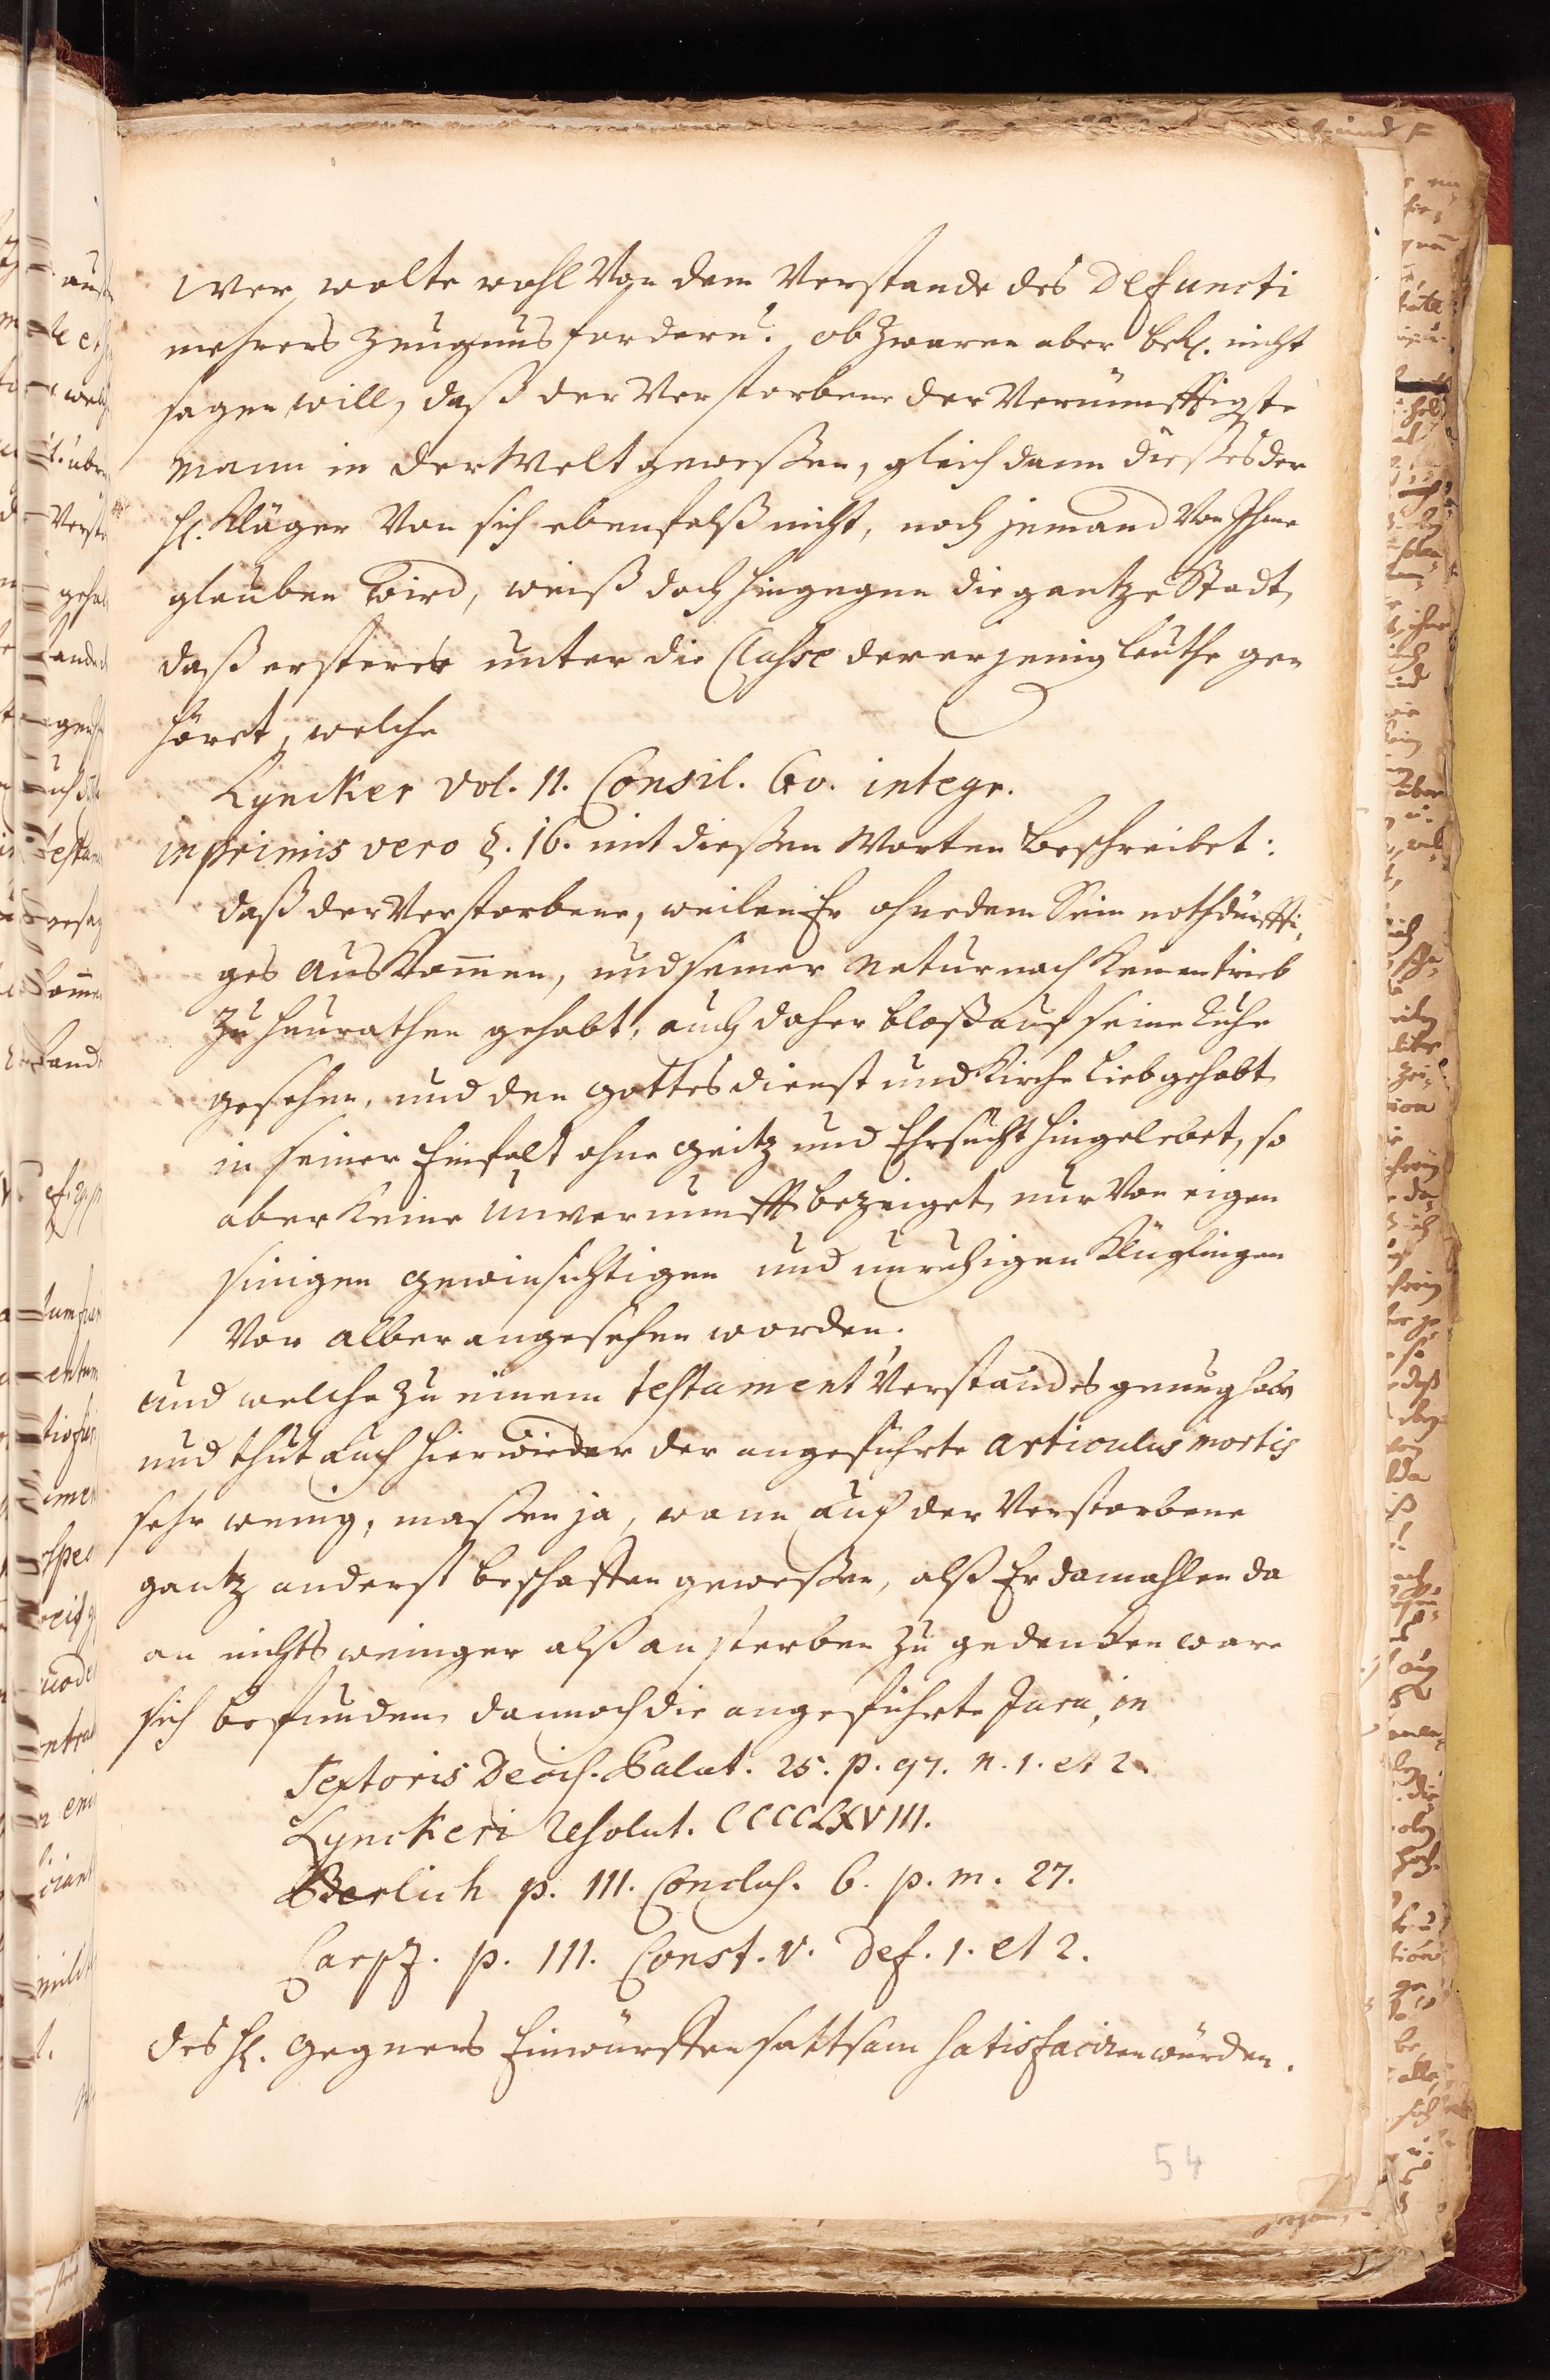 Wer wolte wohl von dem Verstande des Defuncti
mehrers Zeugnus fordern? ob zwaren aber Bekl. nicht
sagen will, daß der Verstorbene der Vernünfftigste
Mann in der Welt geweßen, gleich dann dießes der
H. Kläger von sich ebenfalß nicht, noch jemand von Ihme
glauben wird, weiß doch hingegen die gantze Stadt,
daß ersterer unter die Classe dererjenig leuthe ge
höret, welche
Lyncker Vol. 11. Consil. integr.
inprimis vero §. 16. mit dießen Worten beschreibet:
daß der Verstorbene, weilen Er ohnedem Sein nothdürffti,
ges auskommen, und seiner Natur nach keinen trieb
zu heurathen gehabt, auch daher bloß auf seine Ruhe
gesehen, und den Gottesdienst und Kirche Lieb gehabt
in seiner Einfalt ohne Geitz und Ehrsucht hingelebet, so
aber keine Unvernunfft bezeiget, nur von eigen
sinigen gewinsichtigen und unruhigen Klüglingen
vor alber angesehen worden.
und welche zu einem testament Verstandes genug haben
und thut auch hierwieder der angeführte articulus mortis
sehr wenig, maßen ja, wann auch der Verstorbene
gantz anderst beschaffen geweßen, alß Er damahlen da
an nichts weniger alß an sterben zu gedencken ware
sich befunden dannoch die angeführte Jura, in
Textoris Decis. Palat. 25. p. 97. n. 1. et 2.
Lynckeri Resolut. CCCCLXVIII.
Berlich p. 111. Conclus. 6. p. m. 27.
Carpz. p. 111. Const. V. Def. 1. et 2.
des H. Gegners Einwürffen sattsam satisfaciren würden.
54